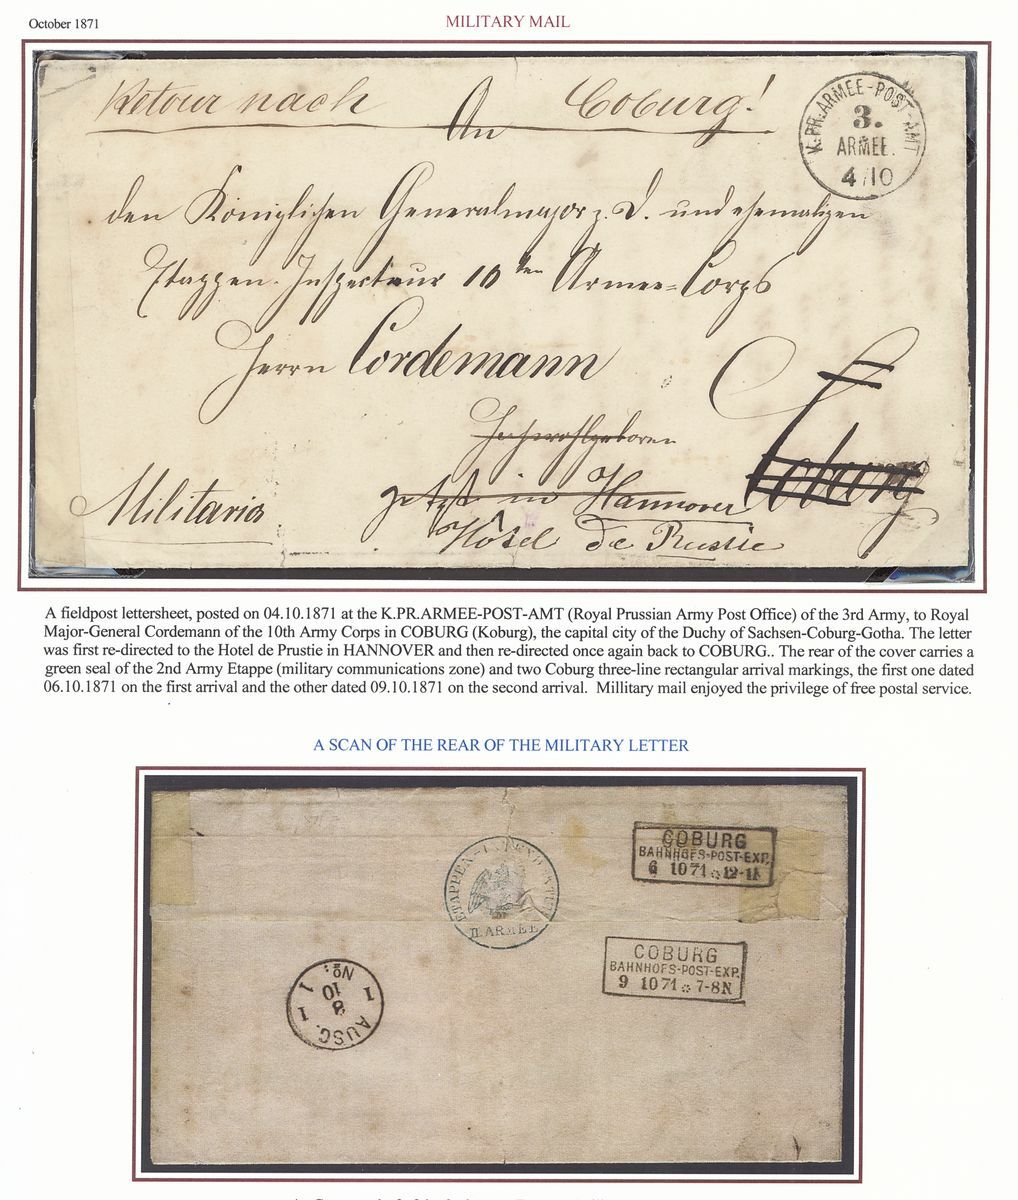 October 1871
MILITARY MAIL
Retour nach Coburg!
An
K.PR.ARMEE-POST-AMT
3.
ARMEE.
4/10
den Königlichen Generalmajor z. D. und ehemaligen
Etappen-Inspecteur 10ten Armee-Corps
Herrn Cordemann
Hochwohlgeboren
Coburg
Militaria
jetzt in Hannover
Hôtel de Russie
A fieldpost lettersheet, posted on 04.10.1871 at the K.PR.ARMEE-POST-AMT (Royal Prussian Army Post Office) of the 3rd Army, to Royal
Major-General Cordemann of the 10th Army Corps in COBURG (Koburg), the capital city of the Duchy of Sachsen-Coburg-Gotha. The letter
was first re-directed to the Hotel de Prustie in HANNOVER and then re-directed once again back to COBURG.. The rear of the cover carries a
green seal of the 2nd Army Etappe (military communications zone) and two Coburg three-line rectangular arrival markings, the first one dated
06.10.1871 on the first arrival and the other dated 09.10.1871 on the second arrival. Millitary mail enjoyed the privilege of free postal service.
A SCAN OF THE REAR OF THE MILITARY LETTER
COBURG
BAHNHOFS-POST-EXP.
6 10 71 12-1
ETAPPEN-
II. ARMEE
COBURG
BAHNHOFS-POST-EXP.
9 10 71 7-8N
AUSG.
8
10
I I
No. 1